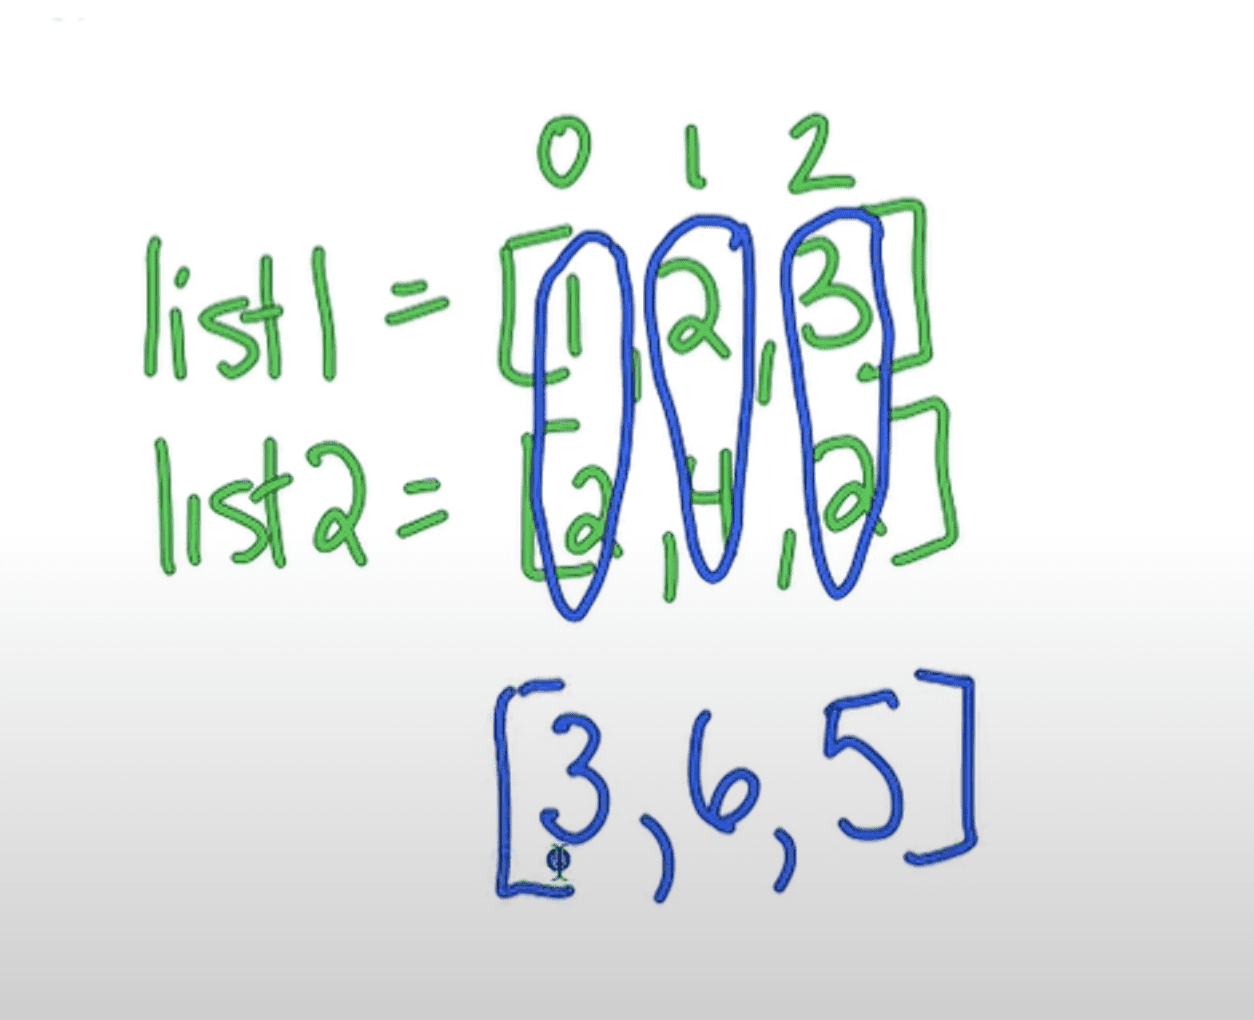 0 1 2
list1 = [1, 2, 3]
list2 = [2, 4, 2]
[3, 6, 5]